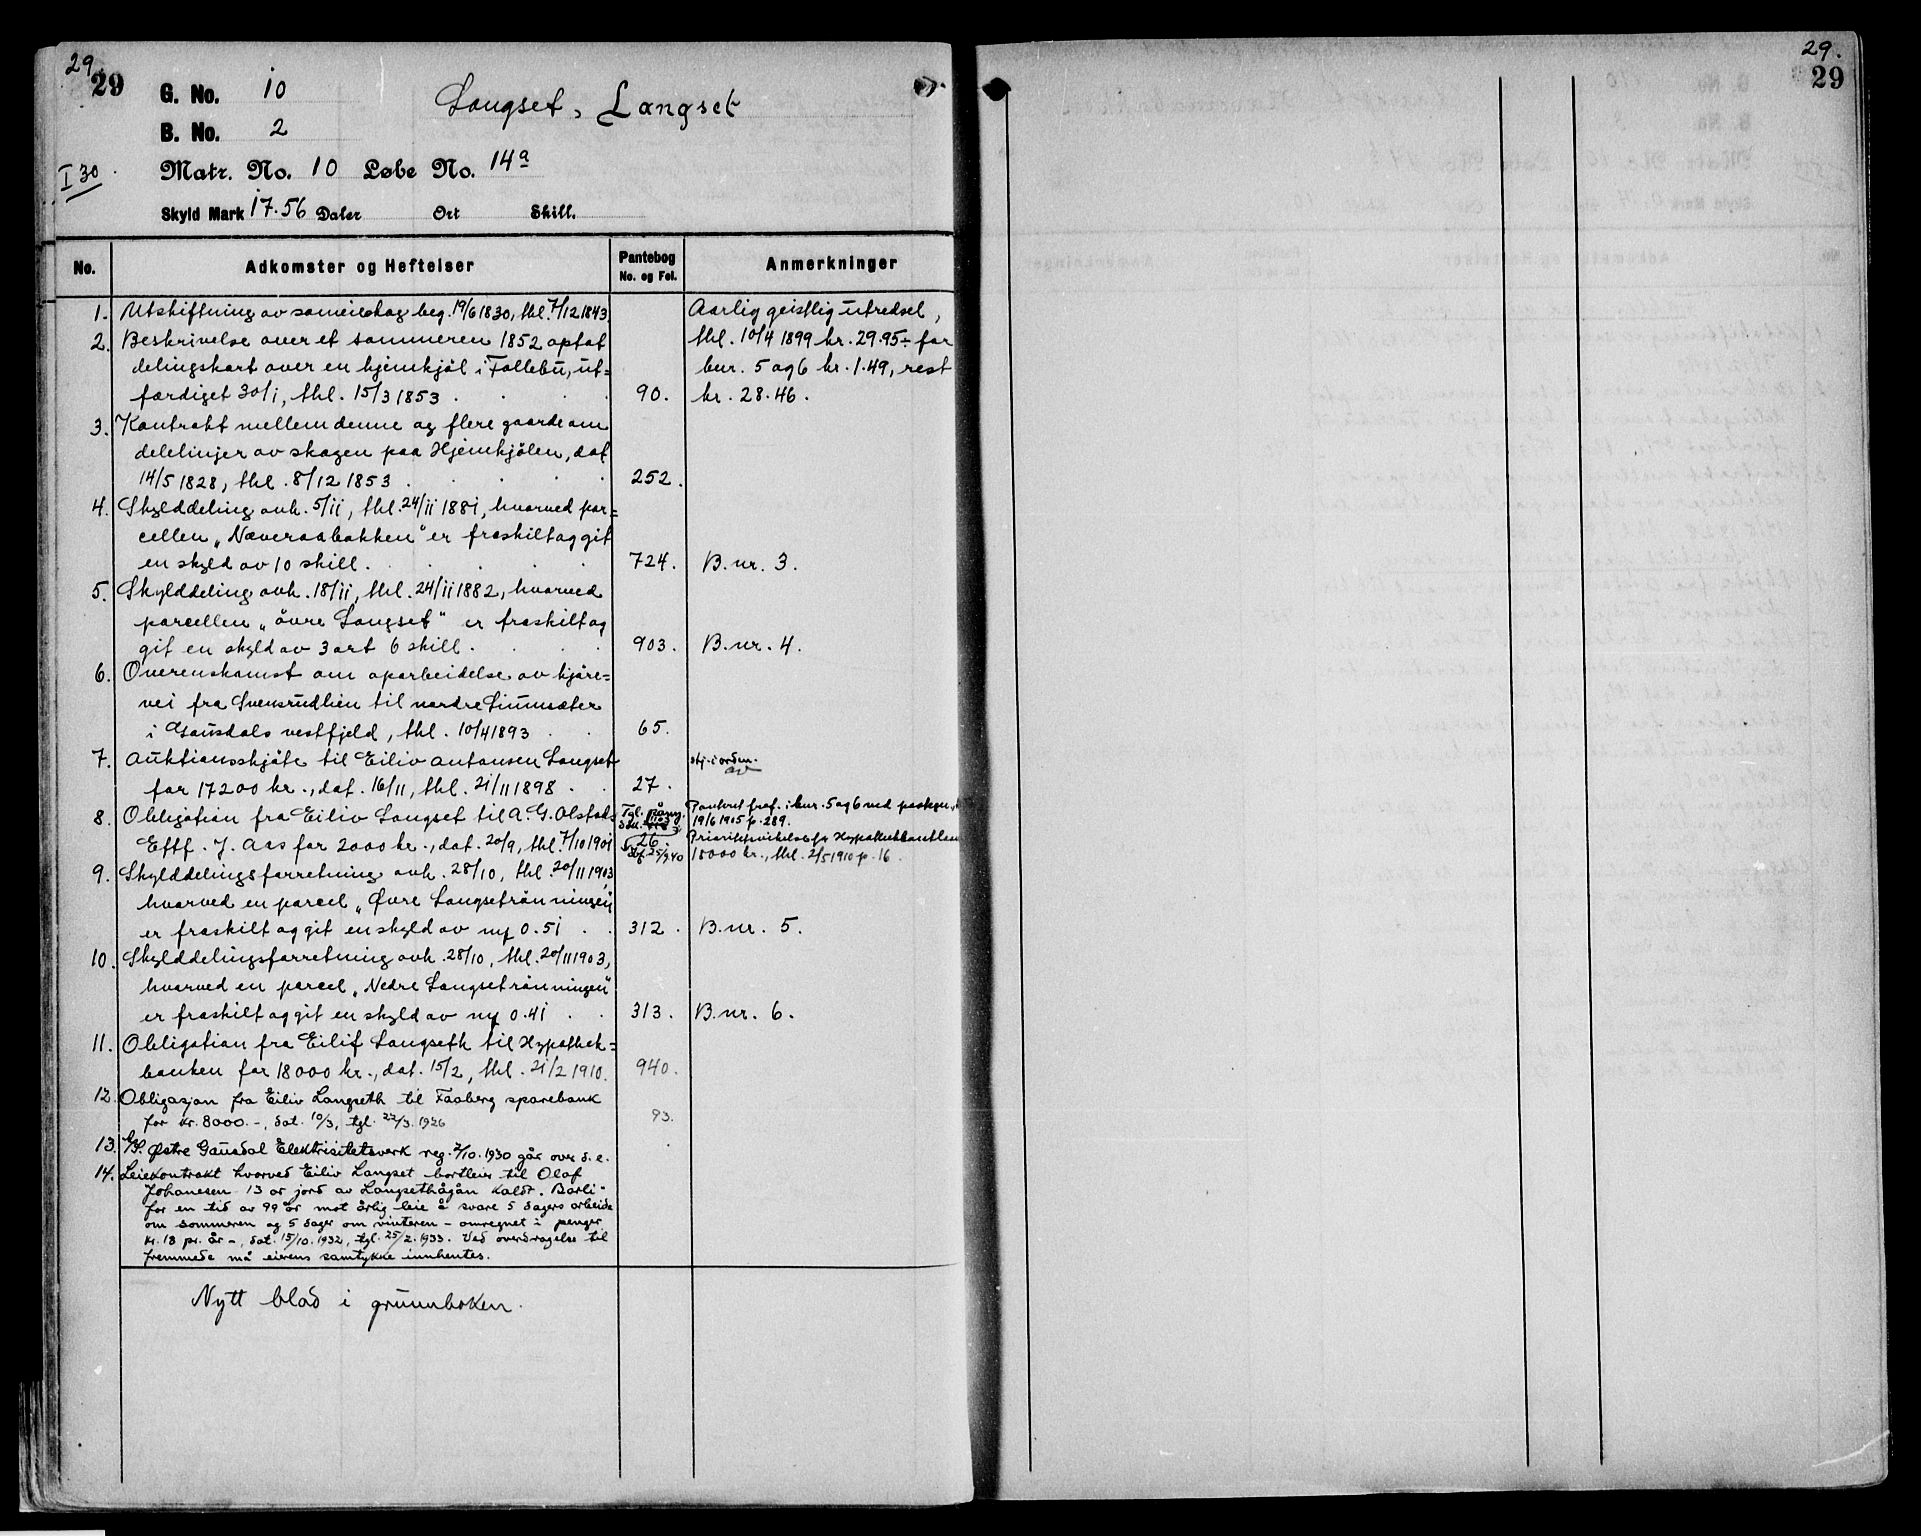 29
29
G. No. 10
B. No. 2
Langset, Langset
I 30
Matr. No. 10 Løbe No. 14a
Skyld Mark 17.56 Daler Ort Skill.
No. Adkomster og Heftelser Pantebog No. og Fol. Anmerkninger
1. Utskiftning av sameieskog beg. 19/6 1830, thl. 7/12 1843.
2. Beskrivelse over et sommeren 1852 optat
delingskart over en hjemkjöl i Follebu, ut=
færdiget 30/1, thl. 15/3 1853 . 90.
Aarlig geistlig utredsel,
thl. 10/4 1899 kr. 29.95 ÷ for
bnr. 5 og 6 kr. 1.49, rest
kr. 28.46.
3. Kontrakt mellem denne og flere gaarde om
delelinjer av skogen paa Hjemkjölen, dat.
14/5 1828, thl. 8/12 1853 . 252.
4. Skylddeling avh. 5/11, thl. 24/11 1881, hvorved par=
cellen „Næveraabakken" er fraskilt og git
en skyld av 10 skill. 724. B.nr. 3.
5. Skylddeling avh. 18/11, thl. 24/11 1882, hvorved
parcellen „övre Langset" er fraskilt og
git en skyld av 3 ort 6 skill. 903. B.nr. 4.
6. Overenskomst om oparbeidelse av kjöre=
vei fra Svensrudlien til nordre Liumsæter
i Gausdals vestfjeld, thl. 10/4 1893 . 65.
7. Auktionsskjöte til Eiliv Antonsen Langset
for 17200 kr., dat. 16/11, thl. 21/11 1898 . 27.
skj. i orden.
8. Obligation fra Eiliv Langset til A. G. Olstads
Eftf. J. Aas for 2000 kr., dat. 20/9, thl. 7/10 1901 26
Panteret fraf. i bnr. 5 og 6 ved paategn.,
19/6 1905 p. 289.
Prioritetsvikelse for Hypothekbanklaan
18000 kr., thl. 2/5 1910 p. 16.
9. Skylddelingsforretning avh. 28/10, thl. 20/11 1903,
hvorved en parcel „Øvre Langsetrönningen"
er fraskilt og git en skyld av ny 0.51 . 312. B.nr. 5.
10. Skylddelingsforretning avh. 28/10, thl. 20/11 1903,
hvorved en parcel „Nedre Langsetrönningen"
er fraskilt og git en skyld av ny 0.41 . 313. B.nr. 6.
11. Obligation fra Eilif Langseth til Hypothek=
banken for 18000 kr., dat. 15/2, thl. 21/2 1910. 940.
12. Obligasjon fra Eiliv Langseth til Faaberg sparebank
for kr. 8000.-, dat. 10/3, tgl. 22/3. 1926 93.
13. A/S. Østre Gausdal Elektrisitetsverk reg. 7/10. 1930 går over d. e.
14. Leiekontrakt hvorved Eiliv Langset bortleier til Olaf
Johanesen 13 ar jord av Langsethågån kaldt „Barli"
for en tid av 99 år mot årlig leie å svare 5 dagers arbeide
om sommeren og 5 dager om vinteren – omregnet i penger
kr. 18 pr. år –, dat. 15/10. 1932, tgl. 25/2. 1933. Ved overdragelse til
fremmede må eierens samtykke innhentes.
Nytt blad i grunnboken.
29.
29